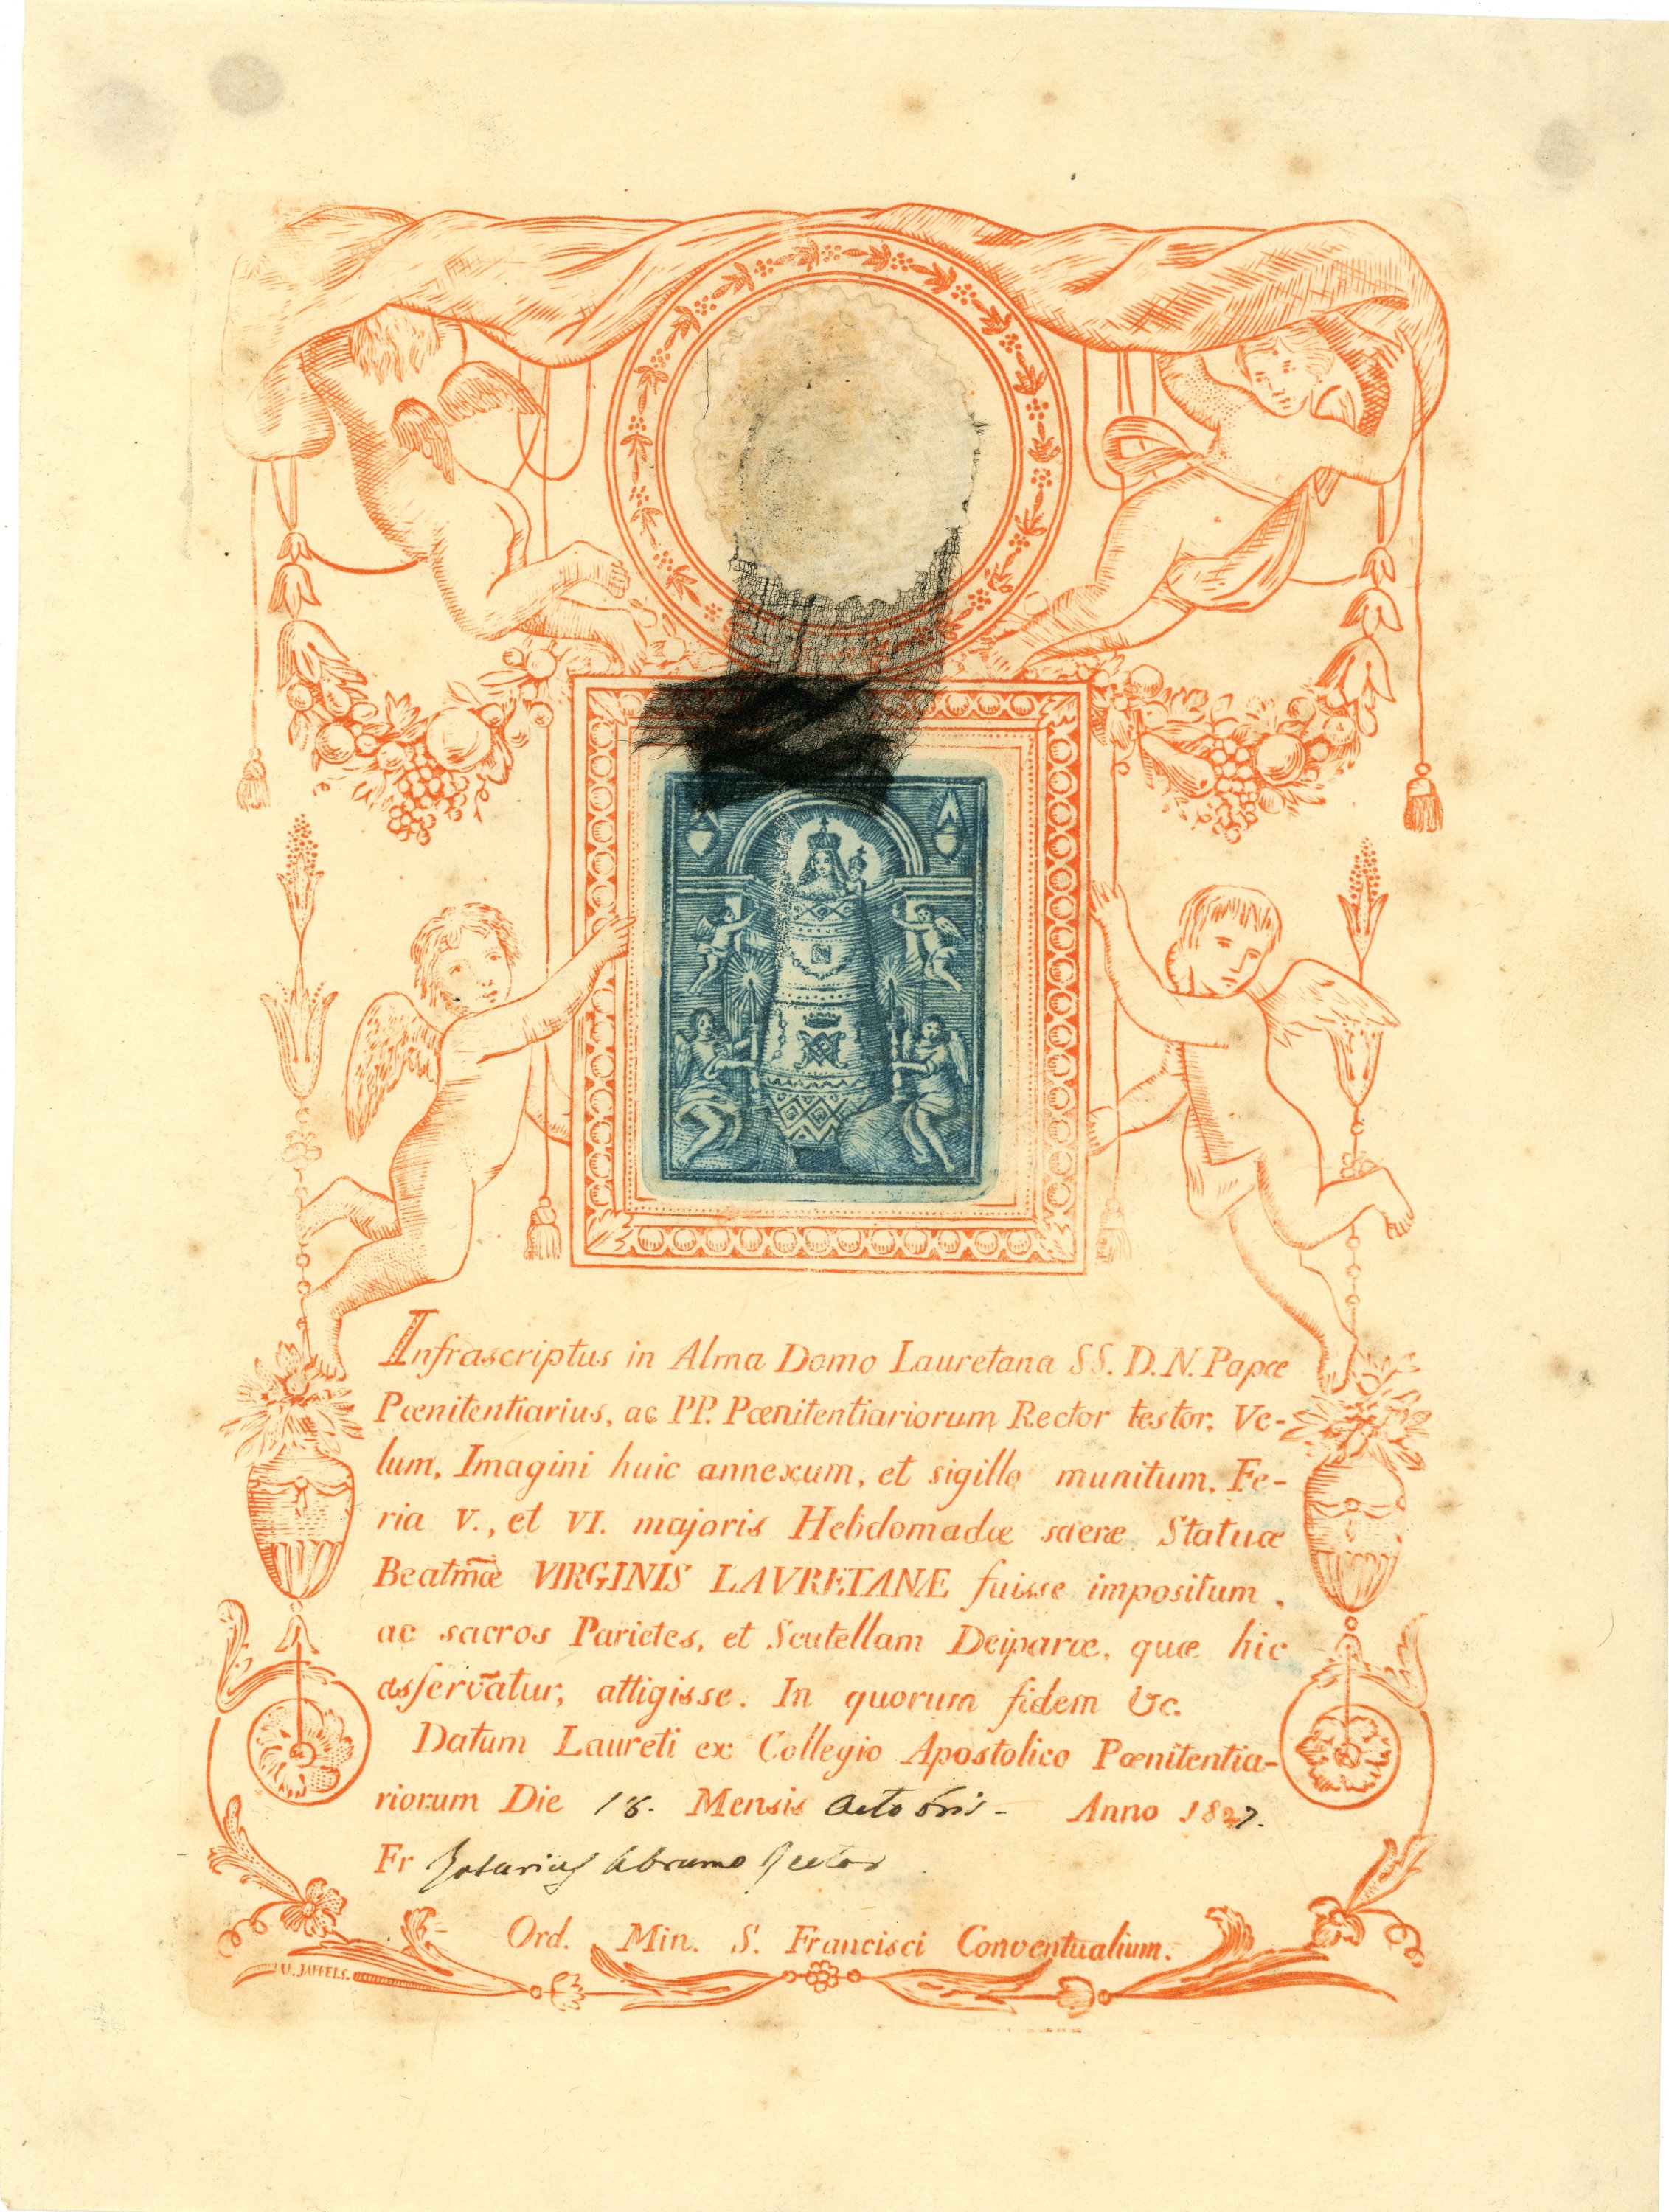 Infrascriptus in Alma Domo Lauretana SS. D. N. Papæ
Pœnitentiarius, ac PP. Pœnitentiariorum Rector testor, Ve-
lum, Imagini huic annexum, et sigillo munitum, Fe-
ria V., et VI. majoris Hebdomadæ sacræ Statuæ
Beatm̃æ VIRGINIS LAVRETANÆ fuisse impositum,
ac sacros Parietes, et Scutellam Deiparæ, quæ hic
asservãtur, attigisse. In quorum fidem &c.
Datum Laureti ex Collegio Apostolico Pœnitentia-
riorum Die 18. Mensis Octobris - Anno 1827.
Fr Abramo Rector
Ord. Min. S. Francisci Conventualium.
U. JAFFEI S.